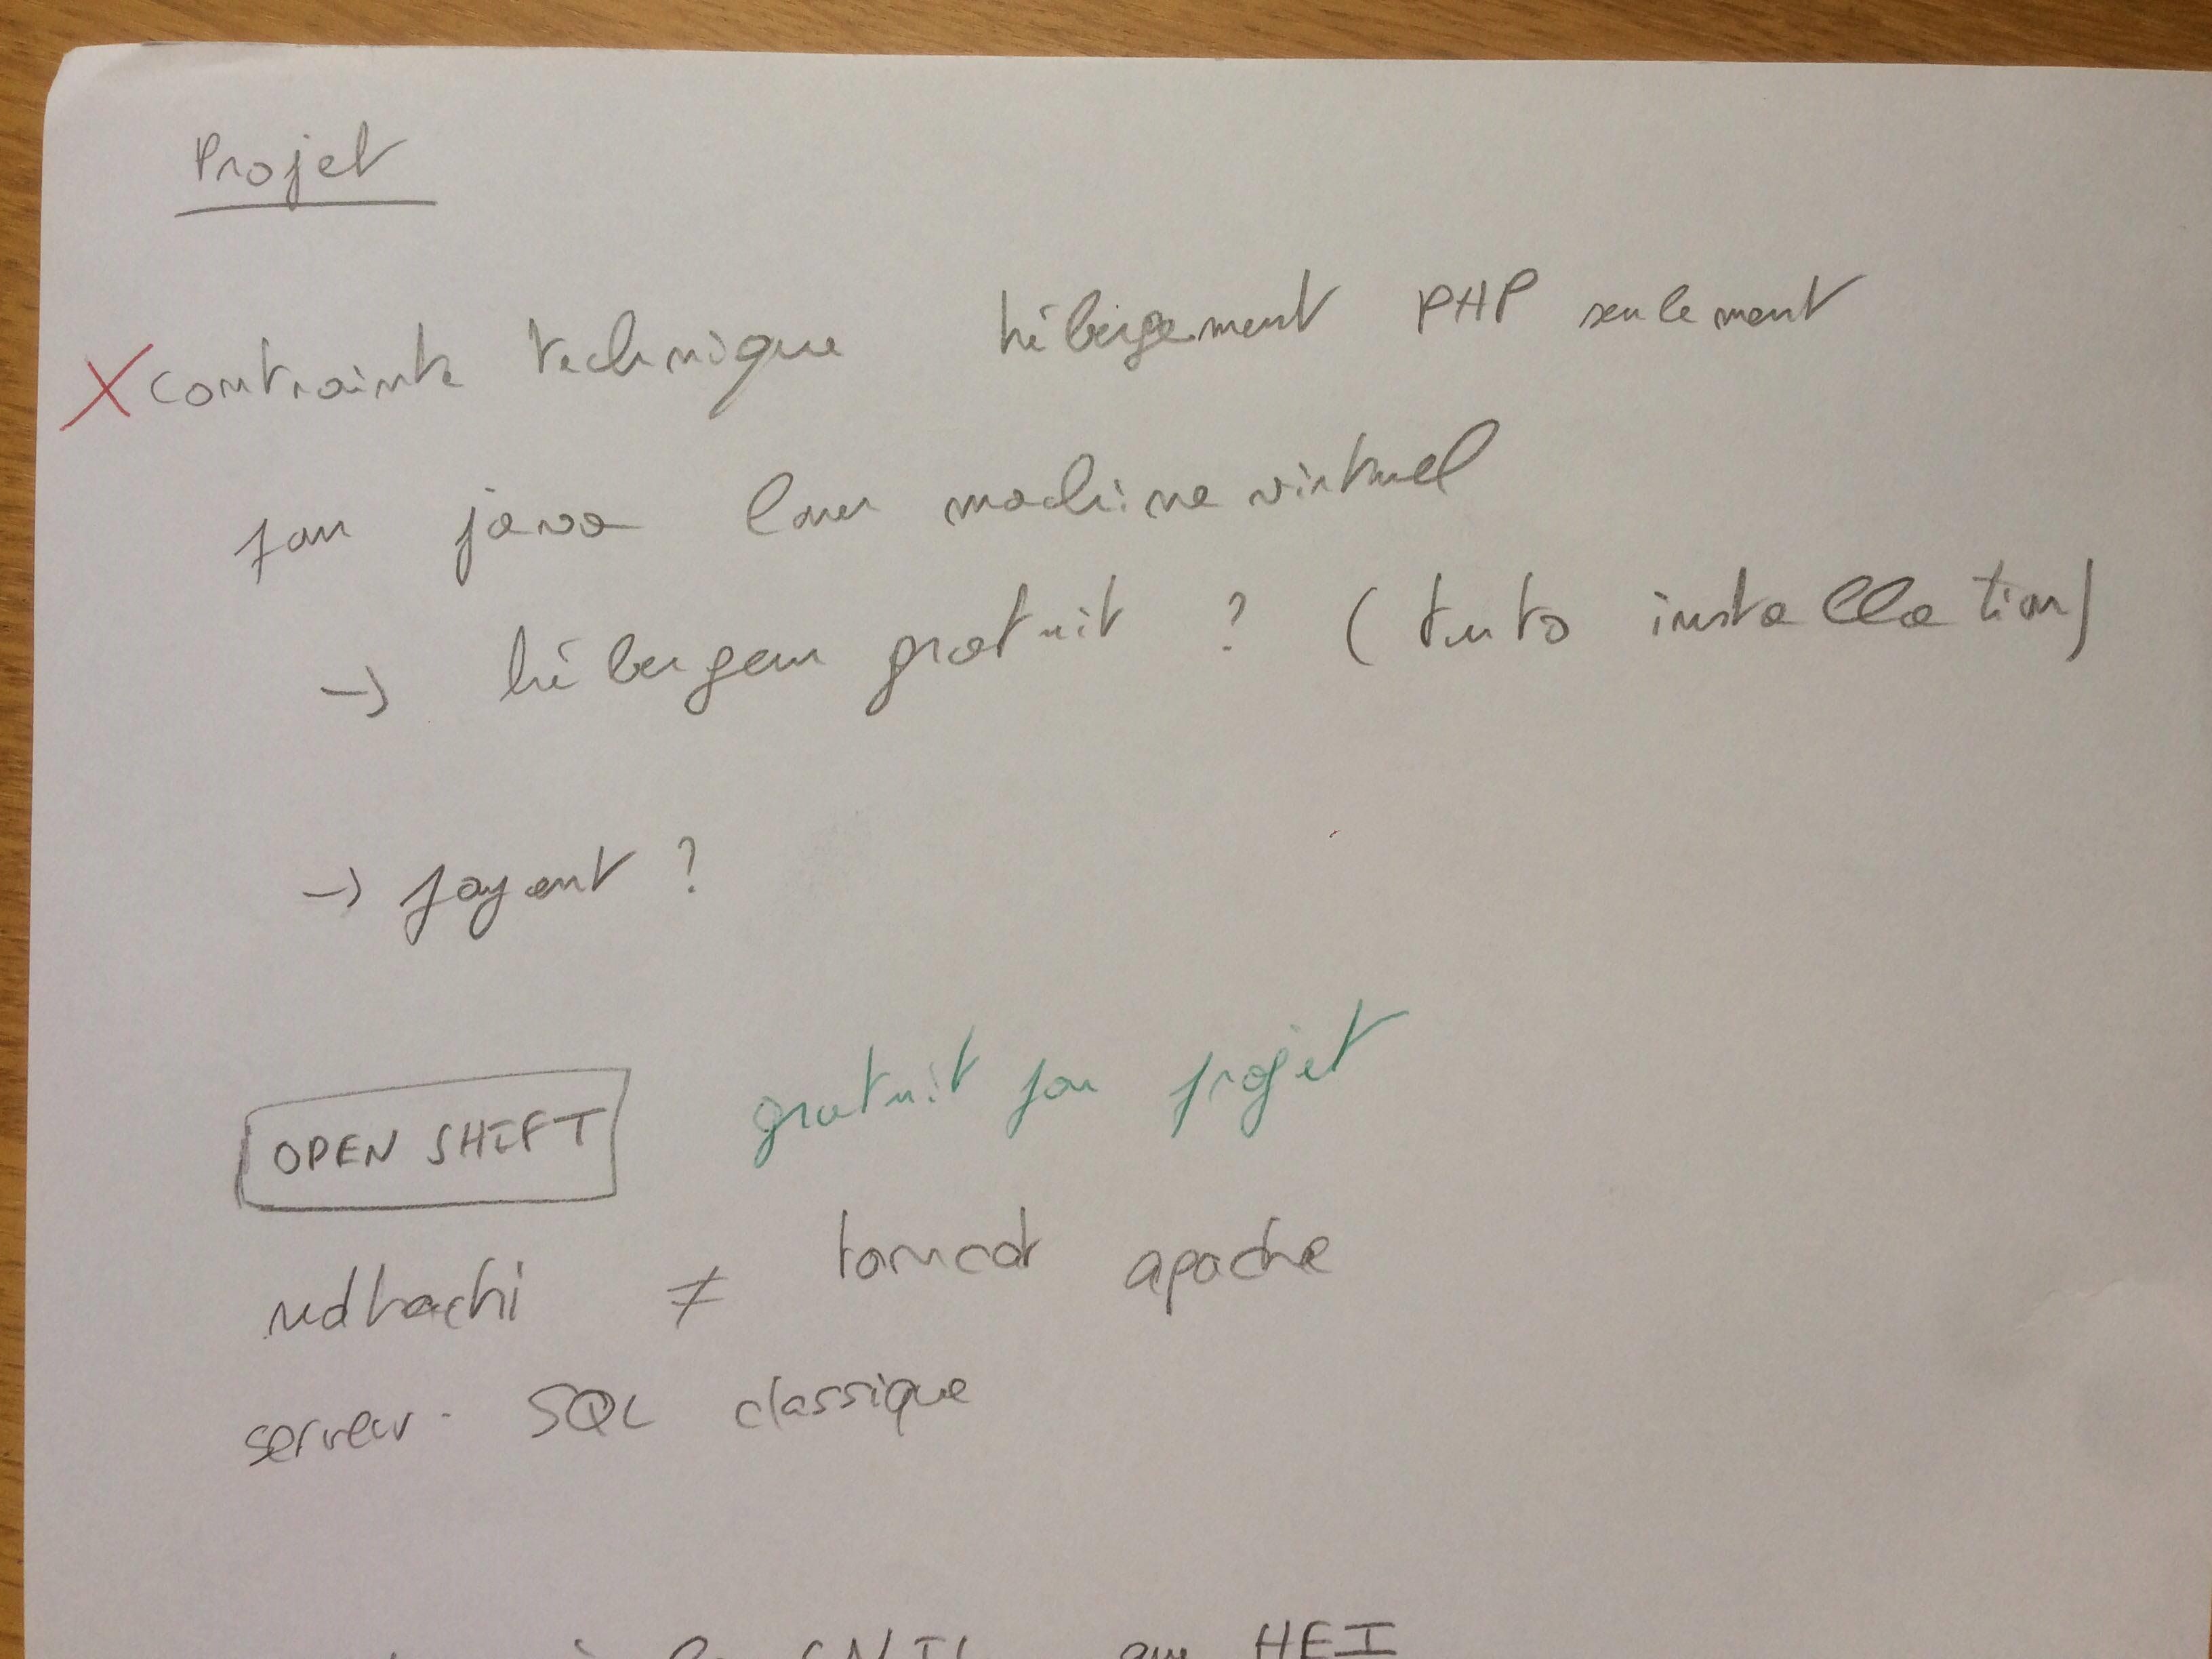 Projet
X contrainte technique hébergement PHP seulement
pour java louer machine virtuel
→ hébergeur gratuit ? (tuto installation)
→ payant ?
OPEN SHIFT gratuit pour projet
≠ tomcat apache
serveur SQL classique
à la CNIL que HEI